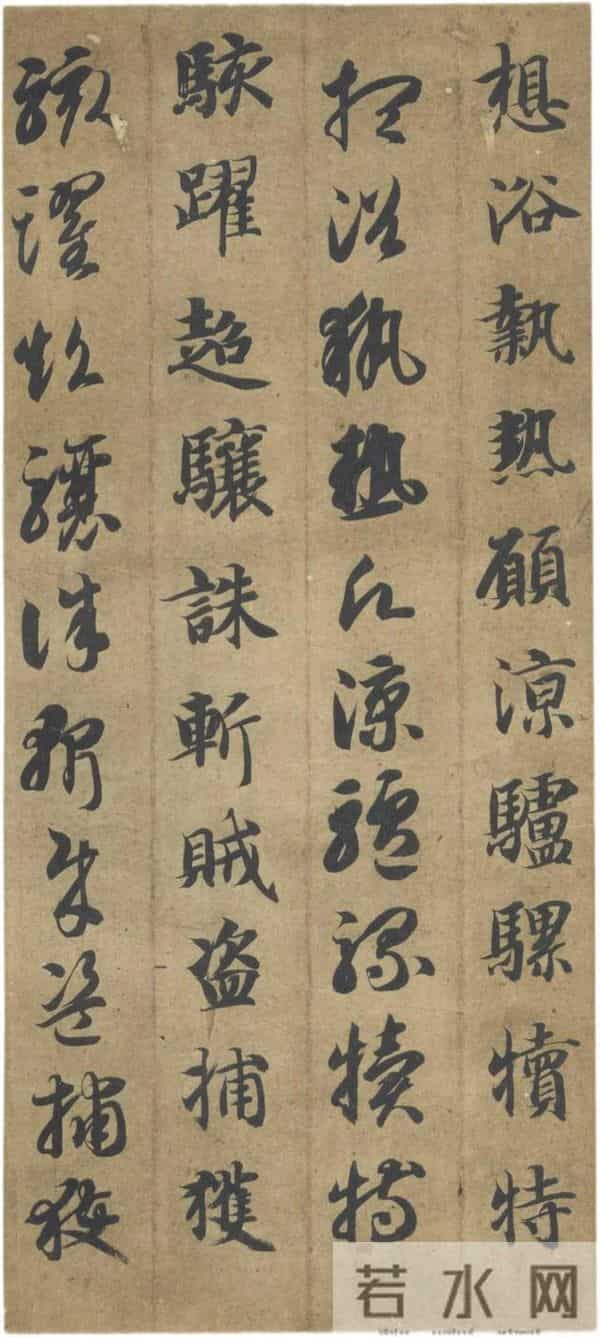 想浴執熱願涼驢騾犢特
想浴執熱願涼驢騾犢特
駭躍超驤誅斬賊盜捕獲
駭躍超驤誅斬賊盜捕獲
若水网